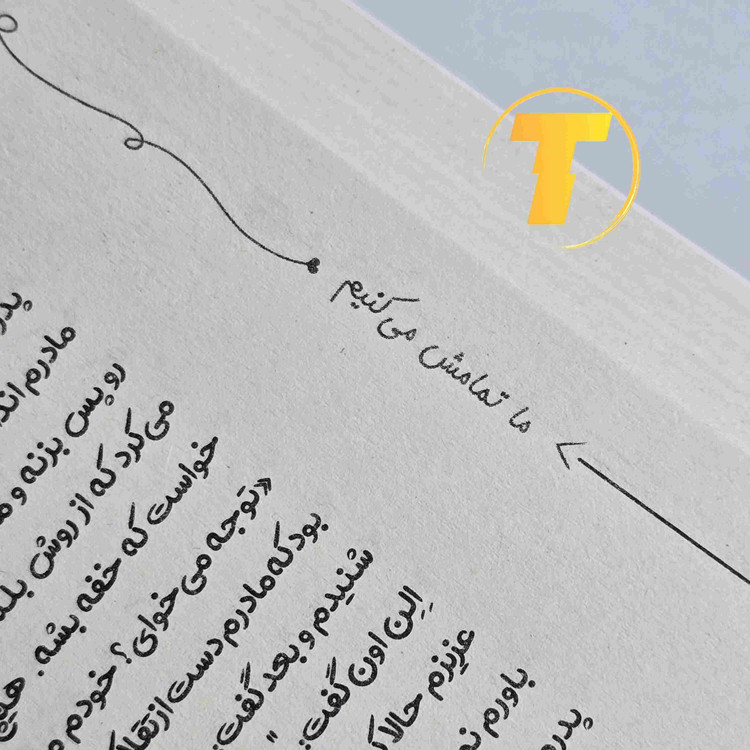 T
ما تمامش می‌کنیم
پدر
مادرم
رو پس بزنه و
می‌کرد که از روش
خواست که خفه بشه. هیچ
«توجه می خوای؟ خودم
بود که مادرم دست از تقلا
شنیدم و بعد گفت:
اِلن اون گفت: "
عزیزم حالا
باورم
پدرم